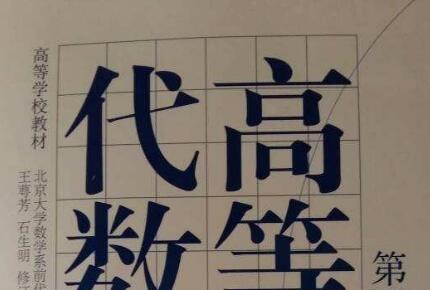 高等
代数
第
高等学校教材
北京大学数学系前代
王萼芳 石生明 修